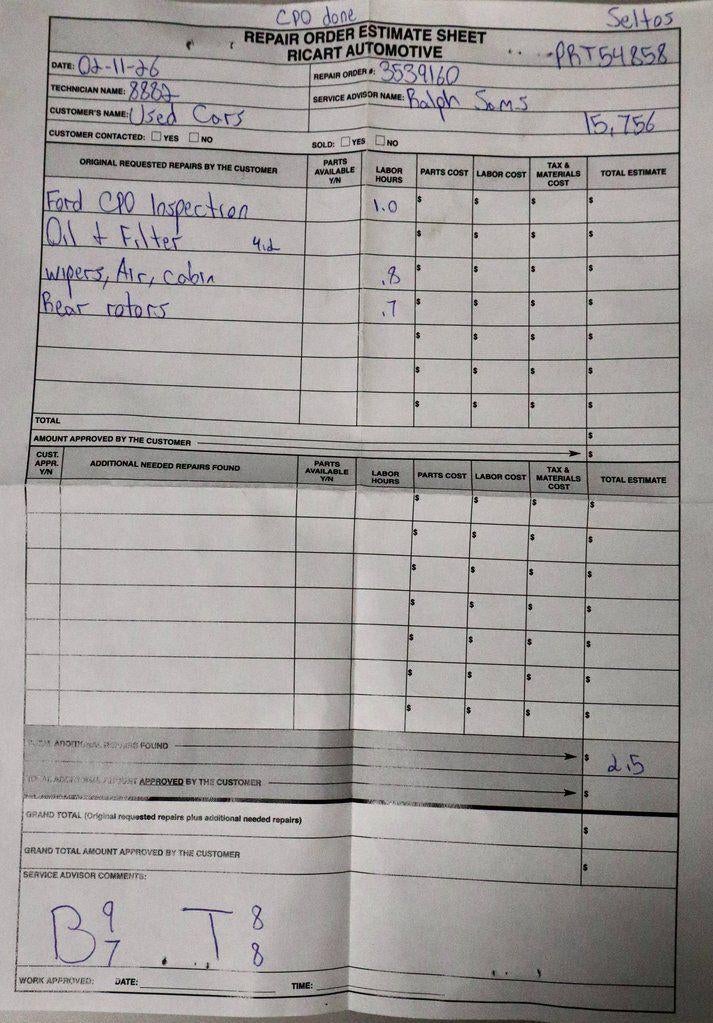 CPO done
Seltos
REPAIR ORDER ESTIMATE SHEET
RICART AUTOMOTIVE
PRT54858
DATE: 02-11-26
REPAIR ORDER #: 3539160
TECHNICIAN NAME: 8882
SERVICE ADVISOR NAME: Ralph Sams
CUSTOMER'S NAME: Used Cars
15,756
CUSTOMER CONTACTED: ☐ YES ☐ NO
SOLD: ☐ YES ☐ NO
ORIGINAL REQUESTED REPAIRS BY THE CUSTOMER PARTS AVAILABLE Y/N LABOR HOURS PARTS COST LABOR COST TAX & MATERIALS COST TOTAL ESTIMATE
Ford CPO Inspection 1.0 $ $ $ $
Oil + Filter 4.2 $ $ $ $
wipers, Air, cabin .8 $ $ $ $
Rear rotors .7 $ $ $ $
$ $ $ $
$ $ $ $
$ $ $ $
TOTAL $
AMOUNT APPROVED BY THE CUSTOMER $
CUST. APPR. Y/N ADDITIONAL NEEDED REPAIRS FOUND PARTS AVAILABLE Y/N LABOR HOURS PARTS COST LABOR COST TAX & MATERIALS COST TOTAL ESTIMATE
$ $ $ $
$ $ $ $
$ $ $ $
$ $ $ $
$ $ $ $
$ $ $ $
$ $ $ $
ADDITIONAL REPAIRS FOUND $ 2.5
APPROVED BY THE CUSTOMER $
GRAND TOTAL (Original requested repairs plus additional needed repairs) $
GRAND TOTAL AMOUNT APPROVED BY THE CUSTOMER $
SERVICE ADVISOR COMMENTS:
B 9 7 T 8 8
WORK APPROVED: DATE: TIME: